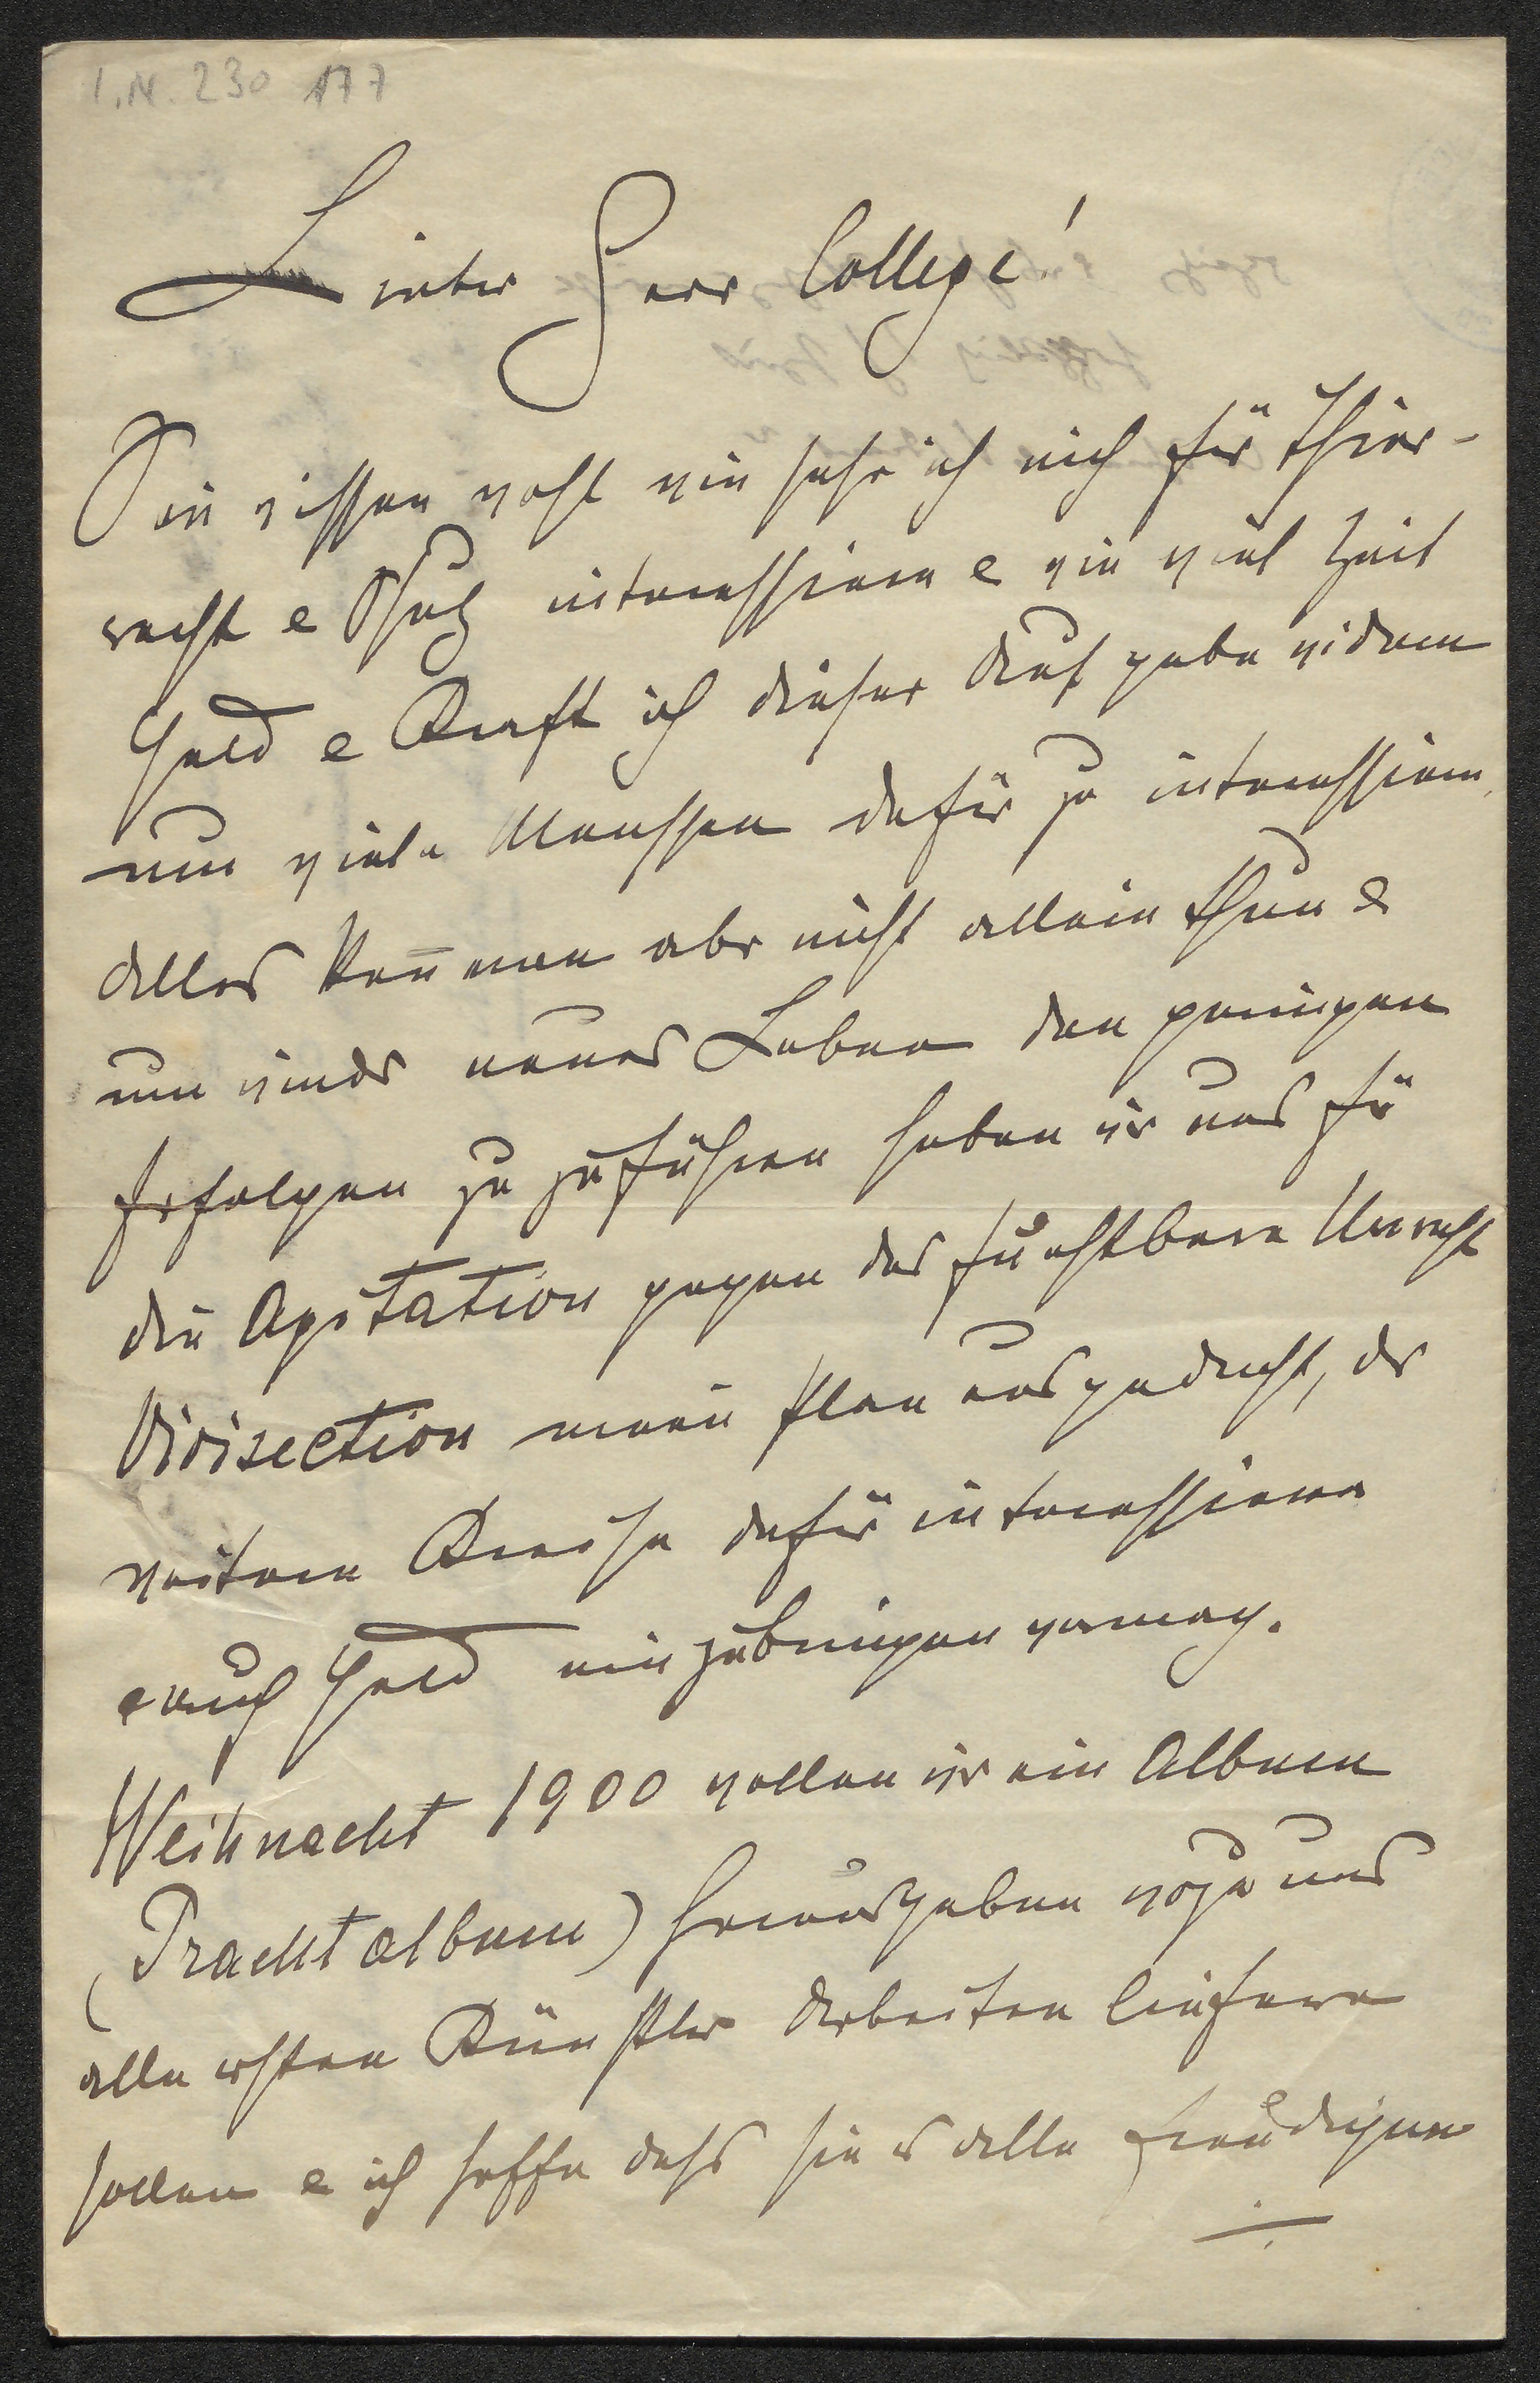 I.N. 230 177
Lieber Herr College!
Sie wissen wohl wie sehr ich mich für Thier-
recht & Schutz interessiere & wie viel Zeit
Geld & Kraft ich dieser Aufgabe widme
um viele Menschen dafür zu interessiern.
Alles kan̄ man aber nicht allein thun &
um wieder neues Leben den geringen
Erfolgen zu zuführen haben wir uns für
die Agitation gegen das furchtbare Unrecht
Vivisection einen Plan ausgedacht, der
weitere Kreise dafür interessieren
& auch Geld einzubringen vermag.
Weihnacht 1900 wollen wir ein Album
(Prachtalbum) herausgeben wozu uns
alle ersten Künstler Arbeiten liefern
sollen & ich hoffe dass sie es alle freudigen